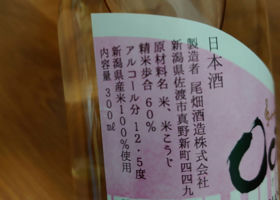 日本酒
製造者 尾畑酒造株式会社
新潟県佐渡市真野新町四四九
原材料名 米、米こうじ
精米歩合 60%
アルコール分 12.5度
新潟県産米100%使用
内容量 300ml